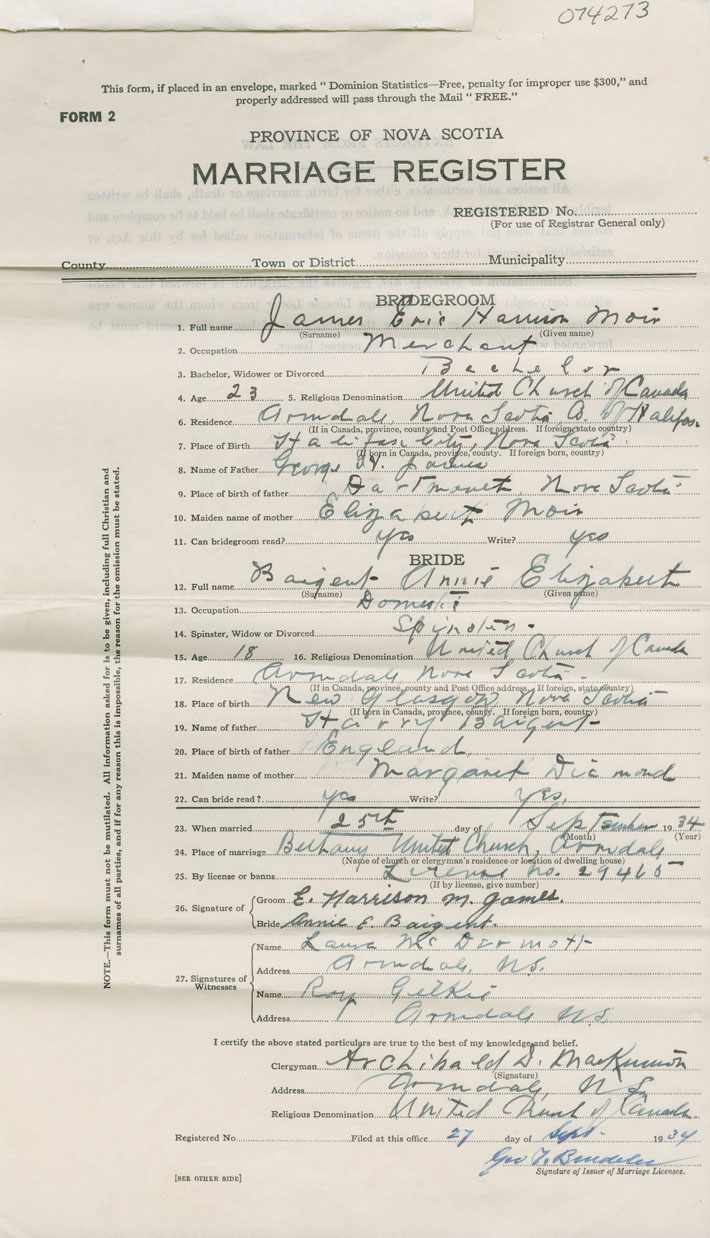 074273
This form, if placed in an envelope, marked " Dominion Statistics—Free, penalty for improper use $300," and
properly addressed will pass through the Mail " FREE."
FORM 2
PROVINCE OF NOVA SCOTIA
MARRIAGE REGISTER
REGISTERED No.
(For use of Registrar General only)
County Town or District Municipality
BRIDEGROOM
1. Full name James Eric Harrison Moir
(Surname) (Given name)
2. Occupation Merchant
3. Bachelor, Widower or Divorced Bachelor
4. Age 23 5. Religious Denomination United Church of Canada
6. Residence Armdale, Nova Scotia Halifax
(If in Canada, province, county and Post Office address. If foreign state country)
7. Place of Birth Halifax City, Nova Scotia
(If born in Canada, province, county. If foreign born, country)
8. Name of Father George H. James
9. Place of birth of father Dartmouth, Nova Scotia
10. Maiden name of mother Elizabeth Moir
11. Can bridegroom read? yes Write? yes
BRIDE
12. Full name Baigent Annie Elizabeth
(Surname) (Given name)
13. Occupation Domestic
14. Spinster, Widow or Divorced Spinster
15. Age 18 16. Religious Denomination United Church of Canada
17. Residence Armdale Nova Scotia
(If in Canada, province, county and Post Office address. If foreign, state country)
18. Place of birth New Glasgow Nova Scotia
(If born in Canada, province, county. If foreign born, country)
19. Name of father Harry Baigent
20. Place of birth of father England
21. Maiden name of mother Margaret Diamond
22. Can bride read? yes Write? yes.
23. When married 25th day of September 1934
(Month) (Year)
24. Place of marriage Bethany United Church, Armdale
(Name of church or clergyman's residence or location of dwelling house)
25. By license or banns License No. 29465
(If by license, give number)
26. Signature of Groom E. Harrison M. James.
Bride Annie E. Baigent.
27. Signatures of Witnesses
Name Laura McDermott
Address Armdale, N.S.
Name Roy Gilkie
Address Armdale N.S.
I certify the above stated particulars are true to the best of my knowledge and belief.
Clergyman Archibald D. MacKinnon
(Signature)
Address Armdale, N.S.
Religious Denomination United Church of Canada
Registered No Filed at this office 27 day of Sept. 1934
Signature of Issuer of Marriage Licenses.
[SEE OTHER SIDE]
NOTE.—This form must not be mutilated. All information asked for is to be given, including full Christian and
surnames of all parties, and if for any reason this is impossible, the reason for the omission must be stated.